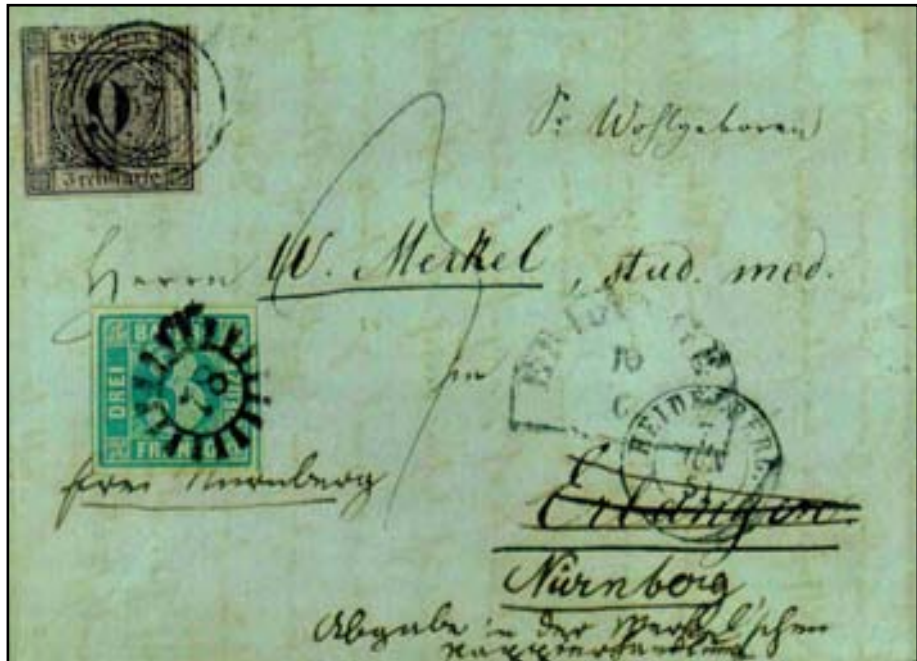 9
Freimarke
Sr Wohlgeboren
Herrn W. Merkel, stud. med.
DREI
FRANCO
in
HEIDELBERG
frei Nürnberg
Erlangen.
Nürnberg
Abgabe in der Merkel'schen